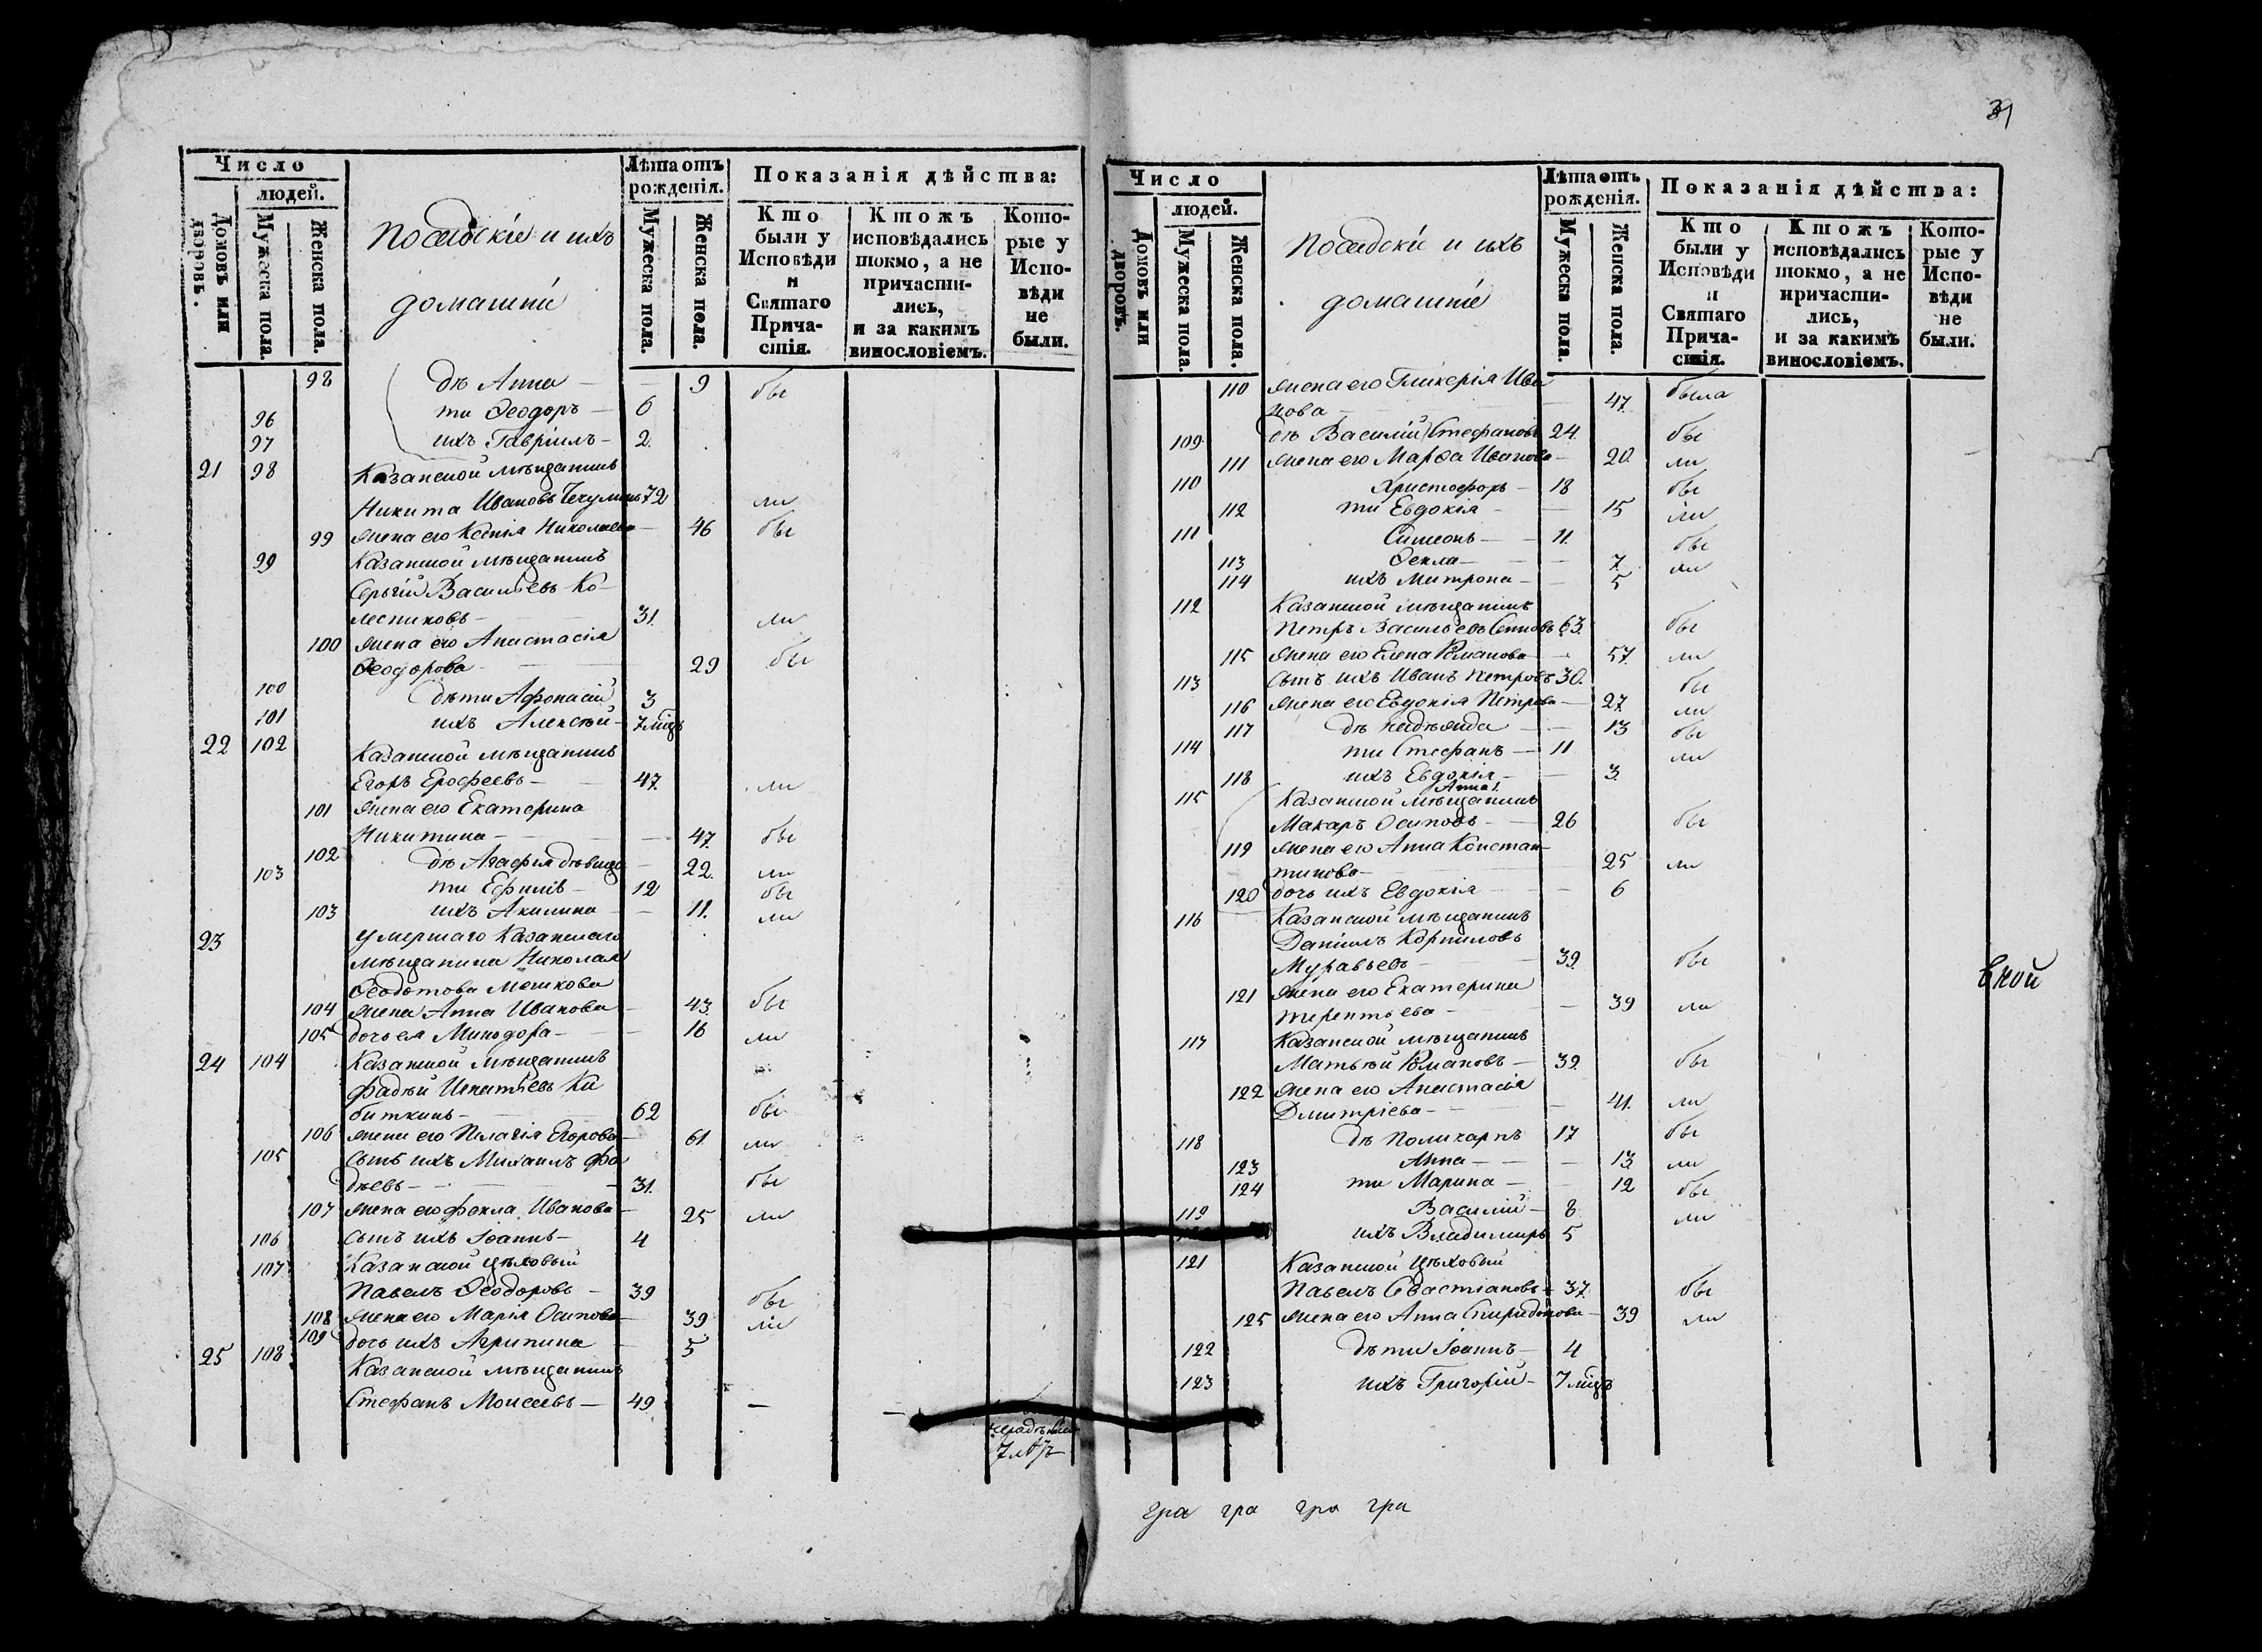 Число
людей.
Домовъ или дворовъ.
Мужеска пола.
Женска пола.
Посадскіе и ихъ
домашніе
Лѣта отъ рожденія.
Мужеска пола.
Женска пола.
Показанія дѣйства:
Кто были у Исповѣди и Святаго Причастія.
Ктожъ исповѣдались токмо, а не причастились, и за какимъ винословіемъ.
Которые у Исповѣди не были.
98 дѣ Анна — — 9 бы
96 ти Ѳеодоръ — 6
97 ихъ Гавріилъ — 2.
21 98 Казанской мѣщанинъ
Никита Ивановъ 72 ли
99 жена его Ксенія Николаева — 46 бы
99 Казанской мѣщанинъ
Сергій Васильевъ Ко-
лесниковъ — 31. ли
100 жена его Анастасія
Ѳеодорова — 29 бы
100 дѣти Афонасій 3
101 ихъ Алексѣй — 7 мцъ
22 102 Казанской мѣщанинъ
Егоръ Ерофеевъ — 47. ли
101 жена его Екатерина
Никитина — — 47. бы
102 дѣ Агафья дѣвица — 22. ли
103 ти Ефимъ — 12 бы
103 ихъ Акилина — 11. ли
23 умершаго Казанскаго
мѣщанина Николая
Ѳеодотова Мошкова
104 жена Анна Иванова — 43. бы
105 дочь ея Минодора — — 16 ли
24 104 Казанской мѣщанинъ
Фадѣй Игнатьевъ Ки
биткинъ — 62 бы
106 жена его Пелагія Егорова — 61. ли
105 сынъ ихъ Михаилъ Фа
дѣевъ — 31. бы
107 жена его Фекла Иванова — 25 ли
106 сынъ ихъ Іоаннъ — 4
107. Казанской цѣховый
Павелъ Ѳеодоровъ — 39 бы
108 жена его Марія Осипова — 39 ли
109 дочь ихъ Агрипина — 5
25 108 Казанской мѣщанинъ
Стефанъ Моисеевъ — 49 — —
31
Число
людей.
Домовъ или дворовъ.
Мужеска пола.
Женска пола.
Посадскіе и ихъ
домашніе
Лѣта отъ рожденія.
Мужеска пола.
Женска пола.
Показанія дѣйства:
Кто были у Исповѣди и Святаго Причастія.
Ктожъ исповѣдались токмо, а не причастились, и за какимъ винословіемъ.
Которые у Исповѣди не были.
110 жена его Гликерія Ива
нова — 47. была
109. дѣ Василій Стефановъ 24. бы
111 жена его Марѳа Иванова — 20. ли
110 Христофоръ — 18 бы
112 ти Евдокія — — 15 ли
111 Симеонъ — — 11. бы
113 Ѳекла — — 7. ли
114 ихъ Митрона — — 5
112 Казанской мѣщанинъ
Петръ Васильевъ 63. бы
115 жена его Елена Романова — 57. ли
113 сынъ ихъ Иванъ Петровъ 30. бы
116 жена его Евдокія Петрова — 27. ли
117 дѣ Надѣжда — 13 бы
114 ти Стефанъ — 11 ли
118 ихъ Евдокія — — 3.
Анна 1.
115 Казанской мѣщанинъ
Макаръ Осиповъ — 26 бы
119 жена его Анна Констан-
тинова — 25 ли
120 дочь ихъ Евдокія — — 6
116 Казанской мѣщанинъ
Даніилъ Корниловъ
Муравьевъ — 39. бы
121 жена его Екатерина
Терентьева — — 39 ли
117 Казанской мѣщанинъ
Матвѣй Романовъ — 39. бы
122 жена его Анастасія
Дмитріева — — 41. ли
118 дѣ Поликарпъ 17 бы
123 Анна — — — 13. ли
124 ти Марина — — 12 бы
119 Василій — 8. ли
ихъ Владимиръ 5
121 Казанской цѣховый
Павелъ Севастіановъ — 37. бы
125 жена его Анна Спиридонова — 39 ли
122 дѣти Іоаннъ — 4
123 ихъ Григорій — 7 мцъ
гра гра гра гра